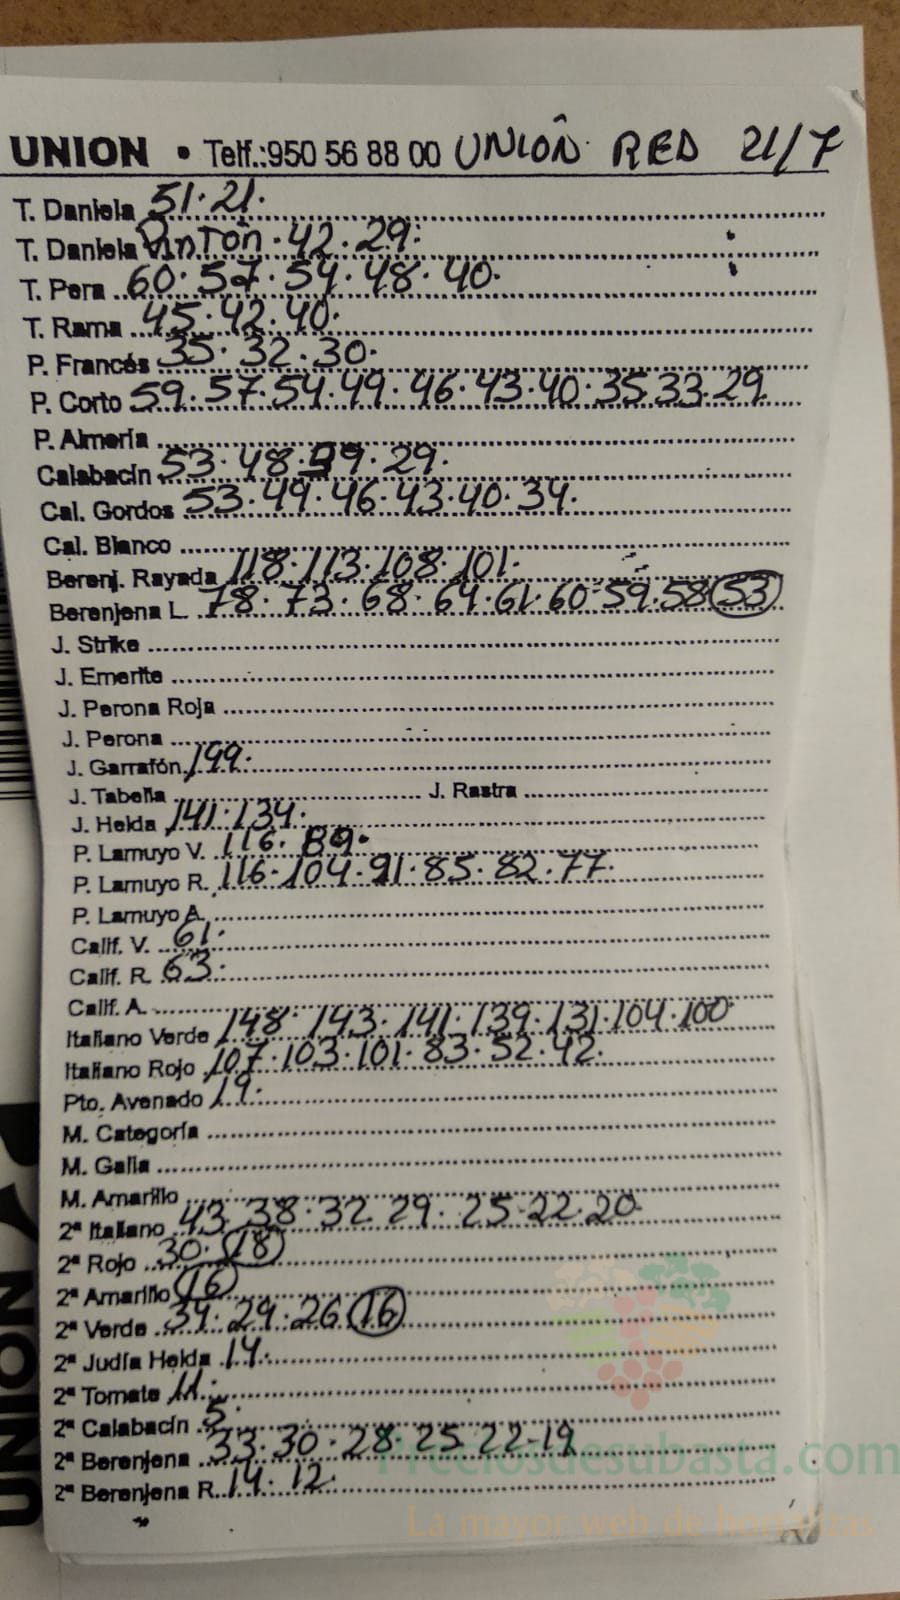 UNION • Telf.:950 56 88 00 UNIÓN RED 21/7
T. Daniela 51·21·
T. Daniela Pintón·42·29·
T. Pera 60·57·54·48·40·
T. Rama 45·42·40·
P. Francés 35·32·30·
P. Corto 59·57·54·49·46·43·40·35·33·29
P. Almería
Calabacín 53·48·39·29·
Cal. Gordos 53·49·46·43·40·34·
Cal. Blanco
Berenj. Rayada 118·113·108·101·
Berenjena L. 78·73·68·64·61·60·59·58 53
J. Strike
J. Emerite
J. Perona Roja
J. Perona
J. Garrafón 199·
J. Tabella J. Rastra
J. Helda 141·134·
P. Lamuyo V. 116·89·
P. Lamuyo R. 116·104·91·85·82·77·
P. Lamuyo A.
Calif. V. 61·
Calif. R. 63·
Calif. A.
Italiano Verde 148·143·141·139·131·104·100
Italiano Rojo 107·103·101·83·52·42·
Pto. Avenado 19·
M. Categoría
M. Galia
M. Amarillo
2ª Italiano 43 38·32 29·25·22·20
2ª Rojo 30·18
2ª Amarillo 16
2ª Verde 34·29·26 16
2ª Judía Helda 14·
2ª Tomate 11·
2ª Calabacín 5·
2ª Berenjena 33·30·28·25 22·19
2ª Berenjena R. 14·12·
UNION
Preciosdesubasta.com
La mayor web de hortalizas